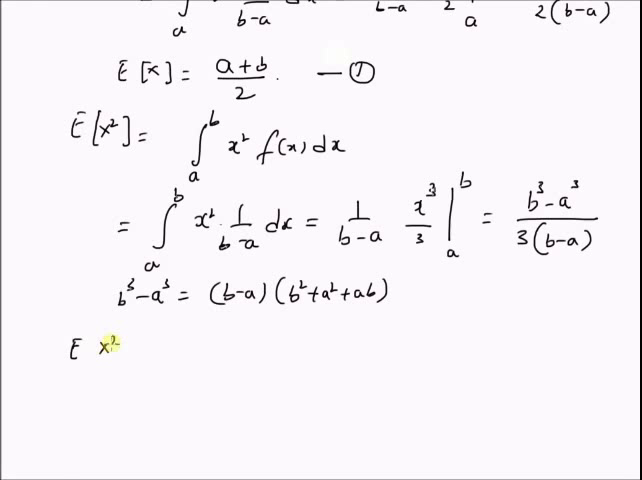 a b-a b-a 2 a 2(b-a)
E[x] = a+b/2 . — ①
E[x²] = ∫ₐᵇ x² f(x) dx
= ∫ₐᵇ x² · 1/b-a dx = 1/b-a x³/3 |ₐᵇ = b³-a³/3(b-a)
b³-a³ = (b-a)(b²+a²+ab)
E x²